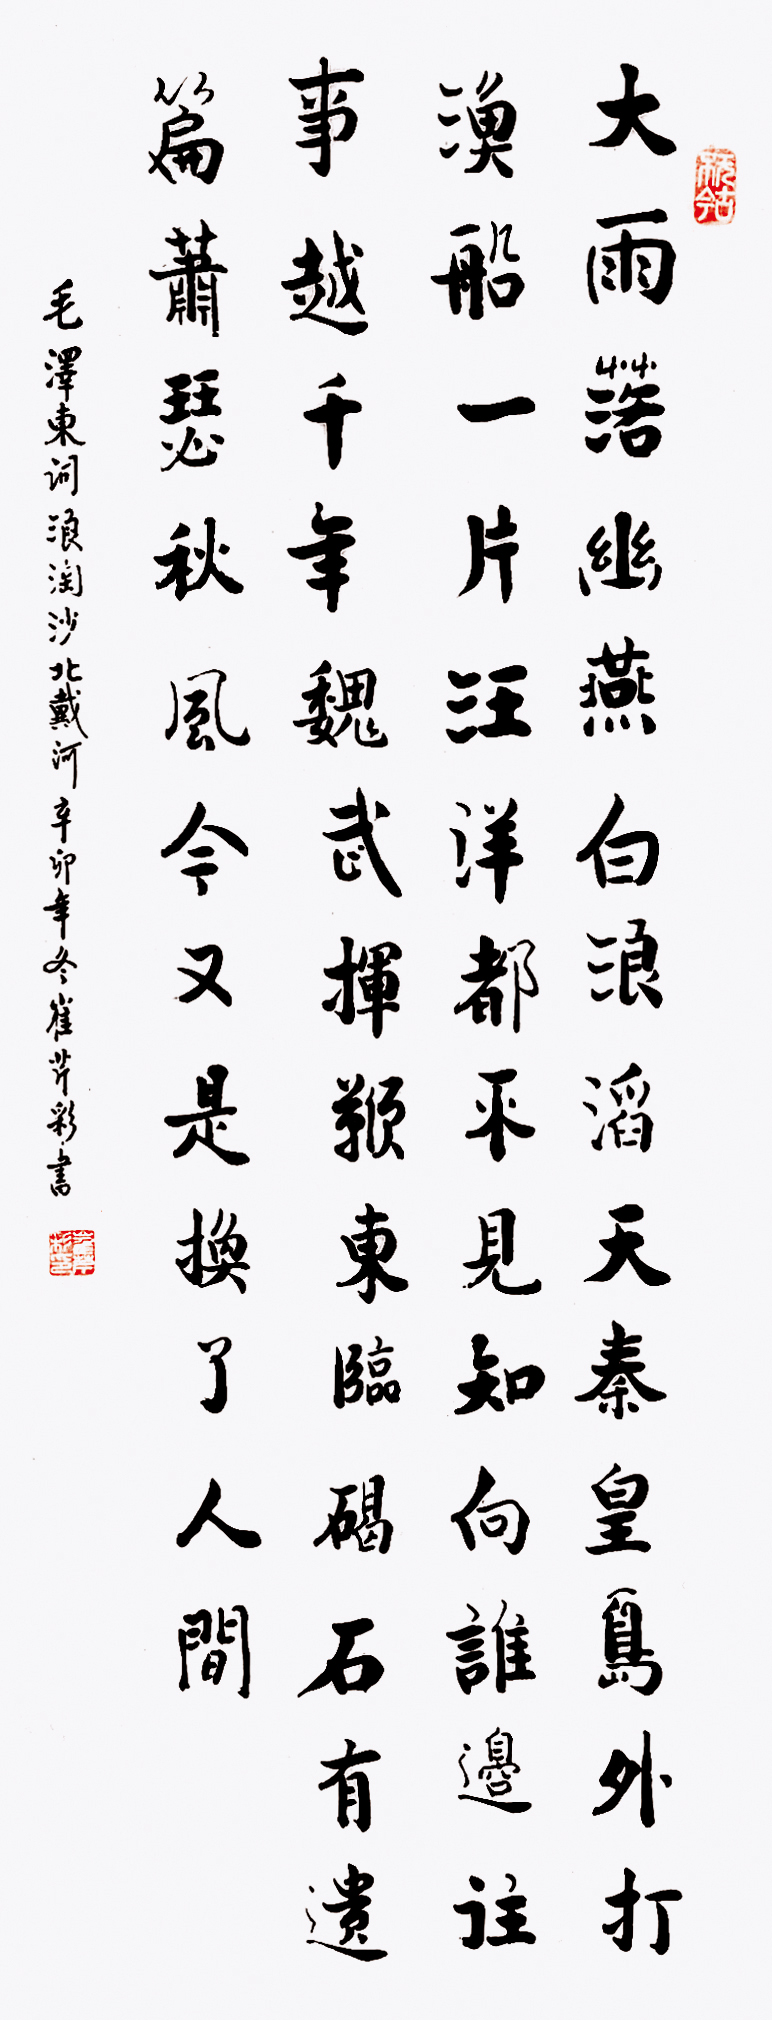 大雨落幽燕白浪滔天秦皇島外打
漁船一片汪洋都不見知向誰邊註
事越千年魏武揮鞭東臨碣石有遺
篇蕭瑟秋風今又是換了人間
毛澤東詞浪淘沙北戴河辛卯年冬崔芹彩書